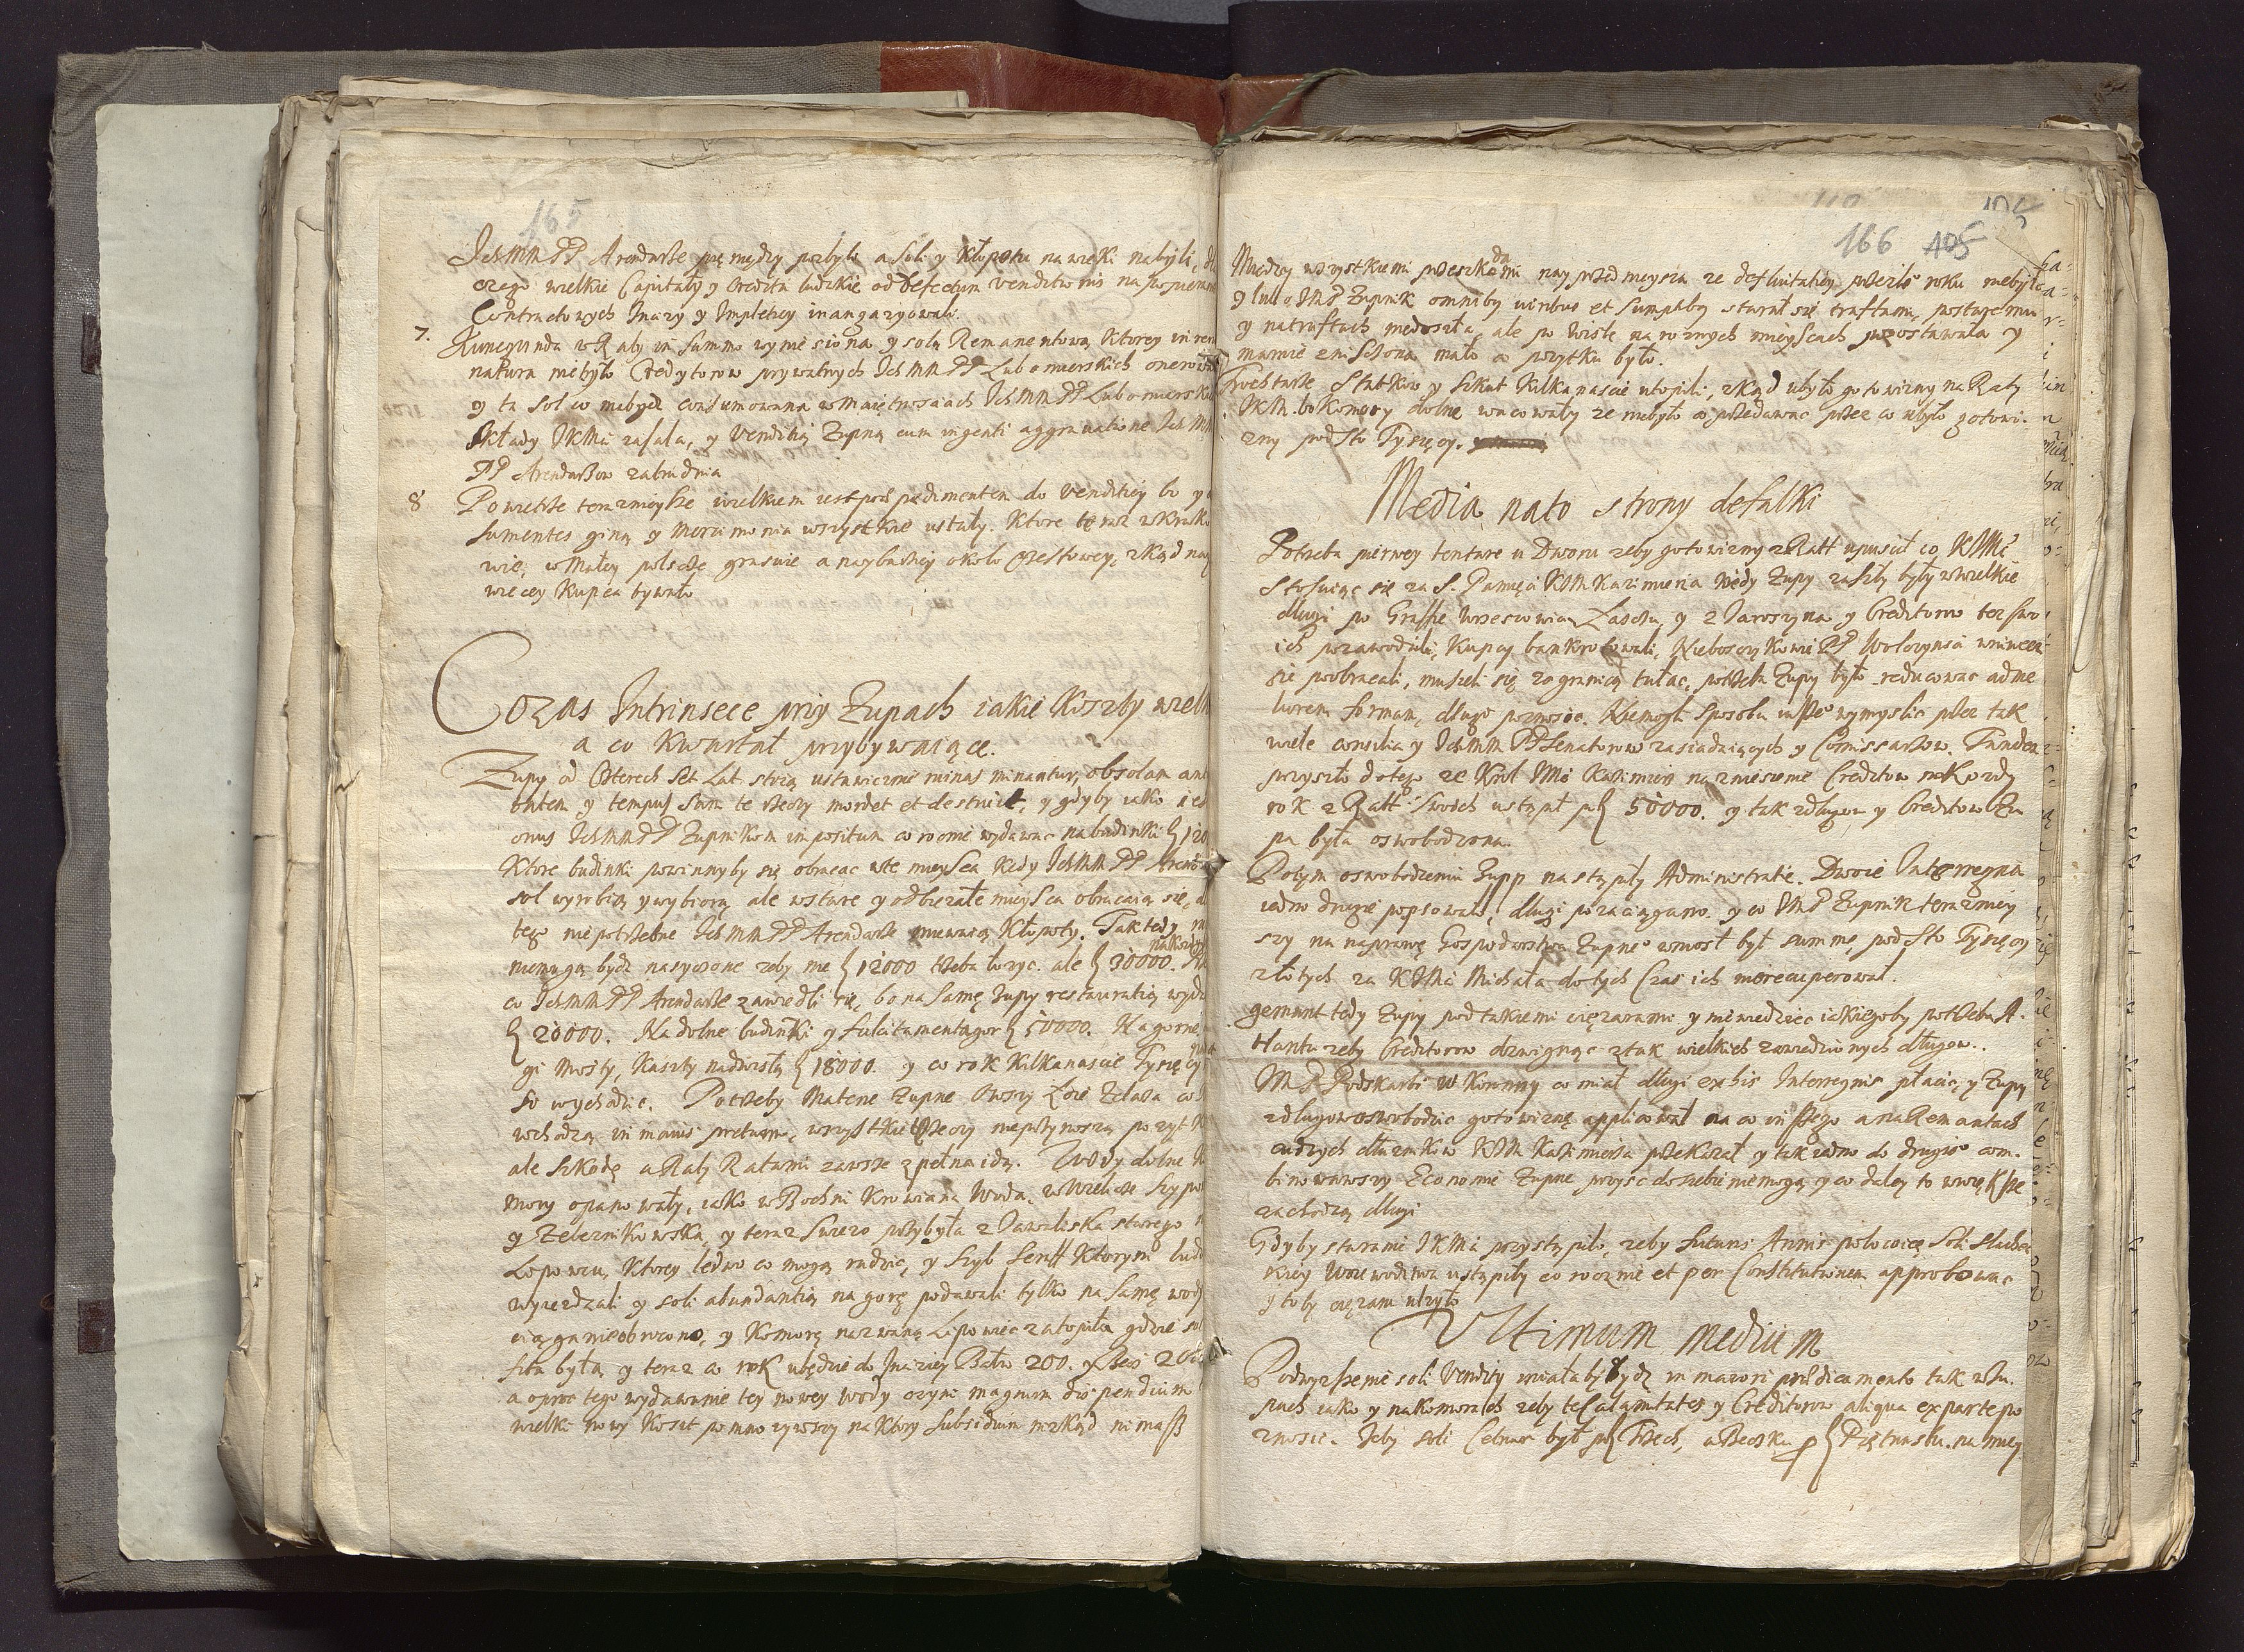 165
IchMM PP Arendarze pieniędzy pozbyli a soli y kłopotu na wieki nabyli,
czego wielkie Capitały y Credita ludzkie od defectum venditionis na
Contractowych Inszy y Impletiey inangaryowali.
7. Kunegunda w Raty in summo wyniesiona y solą Remanentową ktorey in re
natura niebyło Credytorow prywatnych Ich MM PP Lubomierskich
y ta sol co niebyła consumowana w Maiętnosciach Ich MM PP Lubomiersk
Składy IKMci zasala, y Venditią Zupną cum ingenti aggravatione Ich M
PP Arendarzow zatrudnia
8 Powietrze teraznieysze wielkiem iest do venditiey bo
sumentes giną y Mercimonia wszystkie ustały. Ktore teraz w Krako
wie, w Małey polszcze grasuie a naybarziey około skąd nay
wiecey kupca bywało

Cozas Intrinsece przy Zupach iakie koszty wielk
a co kwartał przybywaiące.
Zupy od czterech set lat stoią ustawicznie ruinas minantur, obsolam
y tempus sum te rzeczy mordet et destruit, y gdyby iako
onus IchMM PP Zupnikom impositum co rocznie wydawac na budinki 120
Ktore budinki powinnyby się obracac w te mieysca kędy IchMM PP Arend
sol wyrobią y wybiorą ale w stare y odbiezałe mieysca obracaią się,
tego niepotrzebne IchMM PP Arendarze miewaią kłopoty. Tak tedy
niemogą bydz nasycone zeby nie 12000 trzeba łozyc. ale 30000.
co IchMM PP Arendarze zawiedli się, bo na samę Zupy restauratią wyda
20000. Na dolne budinki y fulcitamenta gor 50000. Na gorne
gi Mosty, Kaszty nad wisłą 18000 y co rok kilkanascie Tysięcy
so wychodzic. Potrzeby Matene Zupne Owsy Łoie Zelaza co
wchodzą in maius pretium, wszystkie rzeczy nieprzynoszą pozytk
ale szkodę a Raty Ratami zawsze zpełna idą. Wody dolne
mory opanowały, iako w Bochni Krowiana Woda, w Wieliczce Szypo
y Zeleznikowska, y teraz swiezo przybyła z Zawaliska starego
Lipowcu, ktorey ledwo co mogą radzic, y szyb Serff ktorym lud
wyiezdzali y soli abundantią na gorę podawali tylko na samę wody
ciągnienie obrocono, y komorę nazwaną Lipowiec zatopiła gdzie sol
sita była y teraz co rok ubędzie do Inszey Bałw 200. y Becz 20
a oprocz tego wydawanie tey nowey wody czyni magnum dispendium
wielki nowy koszt pomnozywszy na ktory subsidium niskąd nimasz

166 105
Miedzy wszystkiemi przeszkodami naypozedmieysza ze defluitatiey przeszłeo roku niebyło
y lubo IMP Zupnik omnibus viribus et sumptibus starał się traftami, postaremu
y na traftach niedoszła, ale po Wisle na roznych mieyscach pozostawała y
marnie zniszczona mało co pozytku było.
Frochtarze Statkow y Szkut kilkanascie utopili, zkąd ubyło gotowizny na Raty
IKM. bo komory dolne wacowały ze niebyło co przedawac przez co ubyło gotowi-
zny pod sto Tysięcy.

Media na to strony defalki
Potrzeba pierwey tentare u Dworu zeby gotowizny z Ratt upuscił co KIMc
stosuiąc się za S. Pamięci KIM Kazimierza kiedy Zupy zaszły były w wielkie
długi po Graffie Wrzesowiu, Łaszczu, y z Jaroszyna y Creditorow tez swo
ich pozawodzili, kupcy bankrotowali, Nieboszczykowie PP Wolczynsci wniwecz
się poobracali, musieli się za granicą tułac, potrzeba Zupy było reducowac ad me
liorem formam, długi poznosic. Niemogli sposobu inszeo wymyslic przez tak
wiele consilia y IchMM PP Senatorow zasiadaiących y Comissarzow. Tandem
przyszło do tego ze Krol IMc Kazimierz na zniesienie Creditow na kozdy
rok z Ratt swoich ustąpił po 50000. y tak z długow y Creditow Zu
pa była oswobodzona.
Potym oswobodzeniu Zupp nastąpiły Administratie. Dwoie Interregna
iedno drugie popsowało, długi pozaciągano. y co IMP Zupnik terazniey
szy na naprawę Gospodarstwa Zupneo wniosł był summę pod sto Tysięcy
złotych za KIMci Michała do tych czas ich nierecuperował.
gemunt tedy Zupy pod takiemi ciężarami y niewiedziec iakiegoby potrzeba A-
tlanta zeby Creditorow dzwignąc z tak wielkich zawiedzionych długow.
IMP Podskarbi W Koronny co miał długi ex his Interregnis płacic, y Zupy
z długow oswobodzic gotowiznę applicował na co inszego a na Remanentach
cudzych dłuznikow KIM Kazimierza przekazał y tak iedno do drugieo com-
binowawszy Economie Zupne przysc do siebie niemogą y co daley to w większe
zachodzą długi
Gdyby staranie IKMci przystąpiło, zeby futuris Annis połowicę soli szlachec
kiey Woiewodztwa ustąpiły co rocznie et per Constitutionem approbowac
y toby ciężaru ulzyło

Ultimum Medium
Podwyzszenie soli Vendity miałaby bydz in maiori praedicamento tak w Zu-
pach iako y na komorach zeby te calamitates y Creditorow aliqua ex parte po
znosic. Zeby soli Cetnar był po Trzech, a Beczka po Piętnastu. na miey